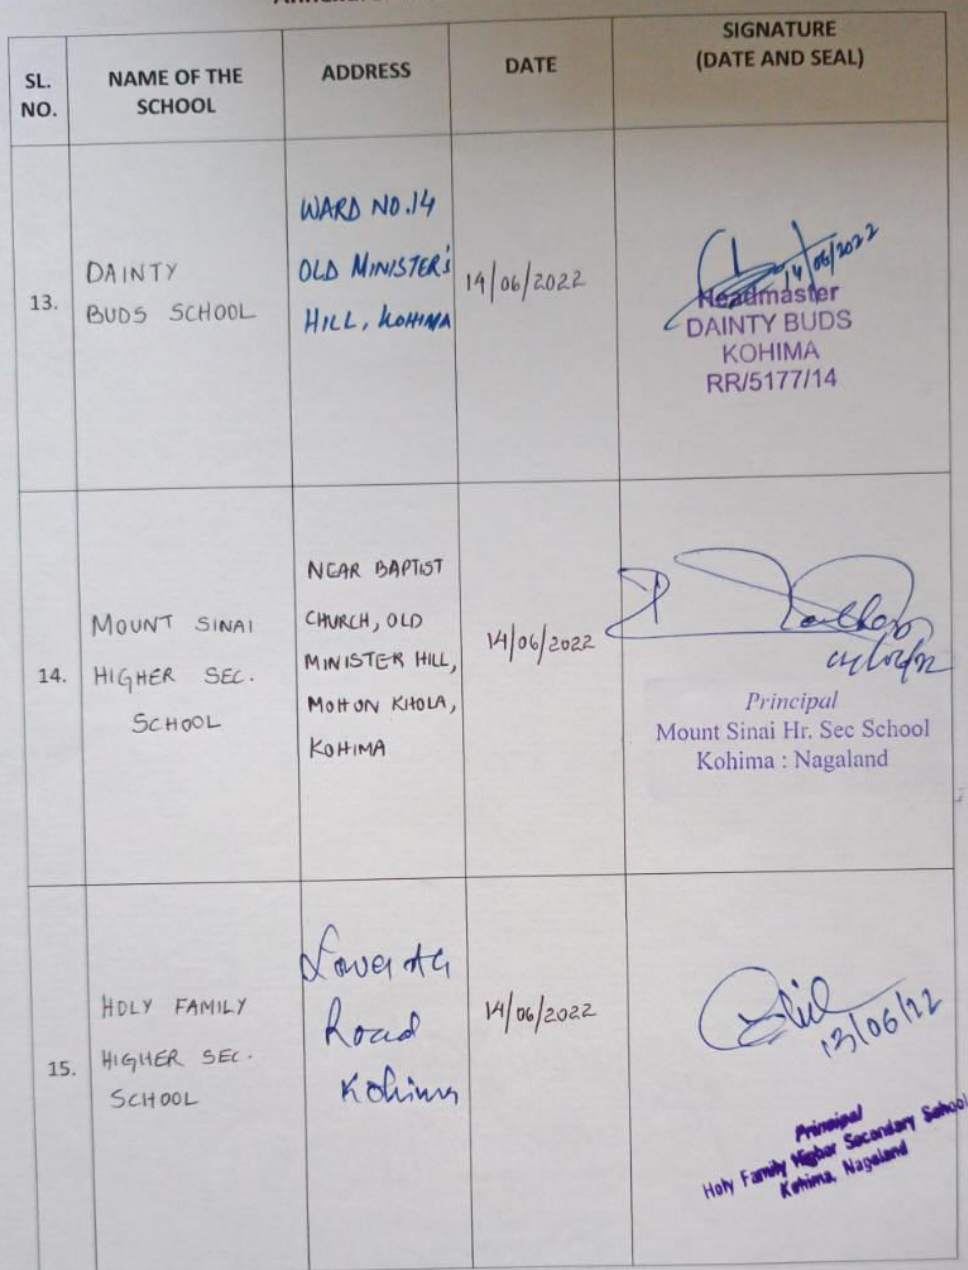 SL.
NO.
NAME OF THE
SCHOOL
ADDRESS
DATE
SIGNATURE
(DATE AND SEAL)
13.
DAINTY
BUDS SCHOOL
WARD NO.14
OLD MINISTER'S
HILL, KOHIMA
14/06/2022
14/06/2022
Headmaster
DAINTY BUDS
KOHIMA
RR/5177/14
14.
MOUNT SINAI
HIGHER SEC.
SCHOOL
NEAR BAPTIST
CHURCH, OLD
MINISTER HILL,
MOHON KHOLA,
KOHIMA
14/06/2022
Principal
Mount Sinai Hr. Sec School
Kohima : Nagaland
15.
HOLY FAMILY
HIGHER SEC.
SCHOOL
Lower AG
Road
Kohima
14/06/2022
13/06/22
Principal
Holy Family Higher Secondary School
Kohima, Nagaland